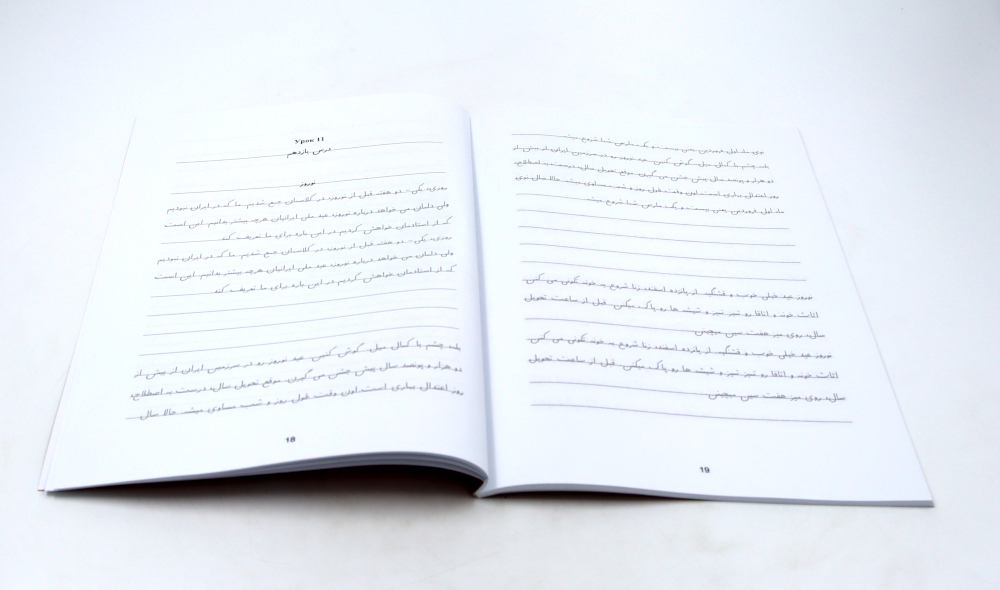 Урок 11
درس یازدهم
نوروز
روزی، یکی - دو هفته قبل از نوروز، در کلاسمان جمع شدیم. ما که در ایران نبودیم
ولی دلمان می خواهد درباره نوروز، عید ملی ایرانیان هرچه بیشتر بدانیم. این است
که از استادمان خواهش کردیم در این باره برای ما تعریف کند.
روزی، یکی - دو هفته قبل از نوروز، در کلاسمان جمع شدیم. ما که در ایران نبودیم
ولی دلمان می خواهد درباره نوروز، عید ملی ایرانیان هرچه بیشتر بدانیم. این است
که از استادمان خواهش کردیم در این باره برای ما تعریف کند.
بله، چشم با کمال میل. گوش کنین. عید نوروز رو در سرزمین ایران از بیش از
دو هزار و پونصد سال پیش جشن می گیرن. موقع تحویل سال، درست به اصطلاح،
روز اعتدال بهاری است. اون وقت طول روز و شب مساوی میشه. حالا سال
18
نوی ما، اول فروردین، یعنی بیست و یک مارس شما شروع میشه.
بله، چشم با کمال میل. گوش کنین. عید نوروز رو در سرزمین ایران از بیش از
دو هزار و پونصد سال پیش جشن می گیرن. موقع تحویل سال، درست به اصطلاح،
روز اعتدال بهاری است. اون وقت طول روز و شب مساوی میشه. حالا سال نوی
ما، اول فروردین، یعنی بیست و یک مارس شما شروع میشه.
نوروز عید خیلی خوب و قشنگیه. از پازده اسفند، زنا شروع به خونه تکونی می کنن.
اثاث خونه و اتاقا رو تمیز تمیز و شیشه ها رو پاک میکنن. قبل از ساعت تحویل
سال، روی میز هفت سین میچینن.
نوروز عید خیلی خوب و قشنگیه. از پازده اسفند، زنا شروع به خونه تکونی می کنن.
اثاث خونه و اتاقا رو تمیز تمیز و شیشه ها رو پاک میکنن. قبل از ساعت تحویل
سال، روی میز هفت سین میچینن.
19